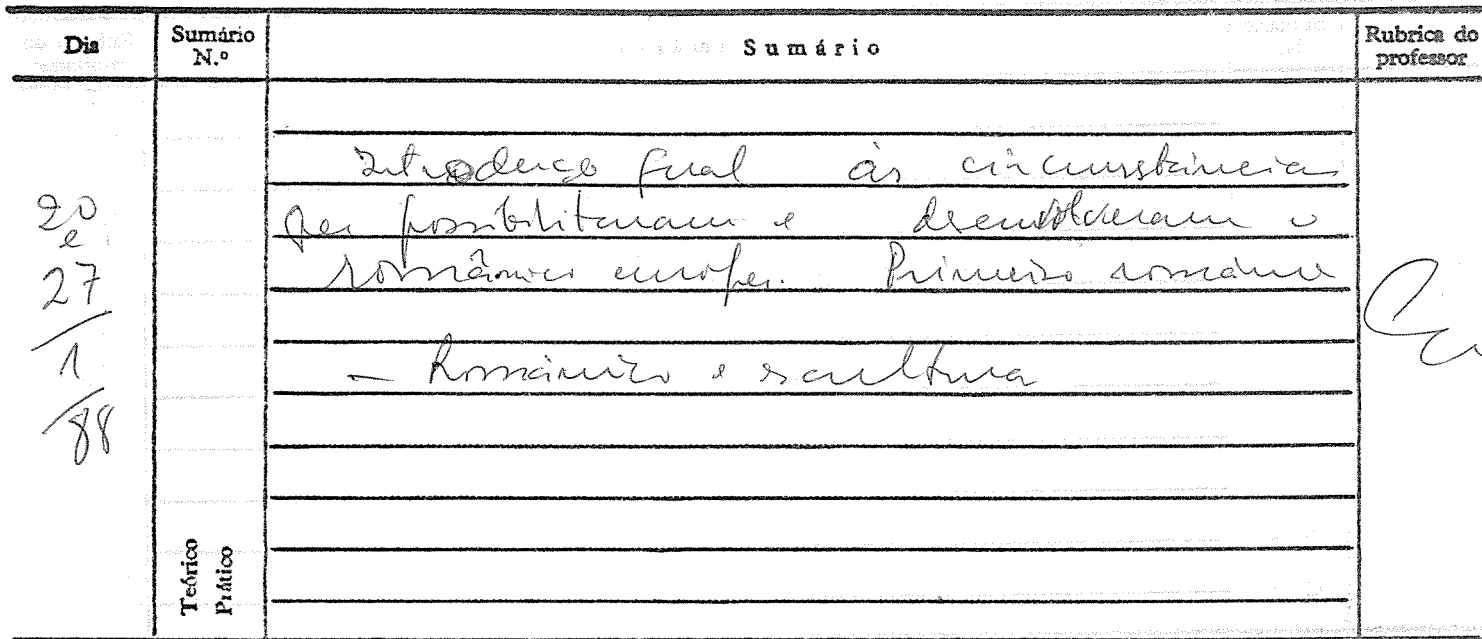 Dia
Sumário N.º
Sumário
Rubrica do professor
20 e 27/1/88
Introdução geral às circunstâncias
que possibilitaram e desenvolveram o
românico europeu. Primeiro românico
— Românico e escultura
Teórico
Prático